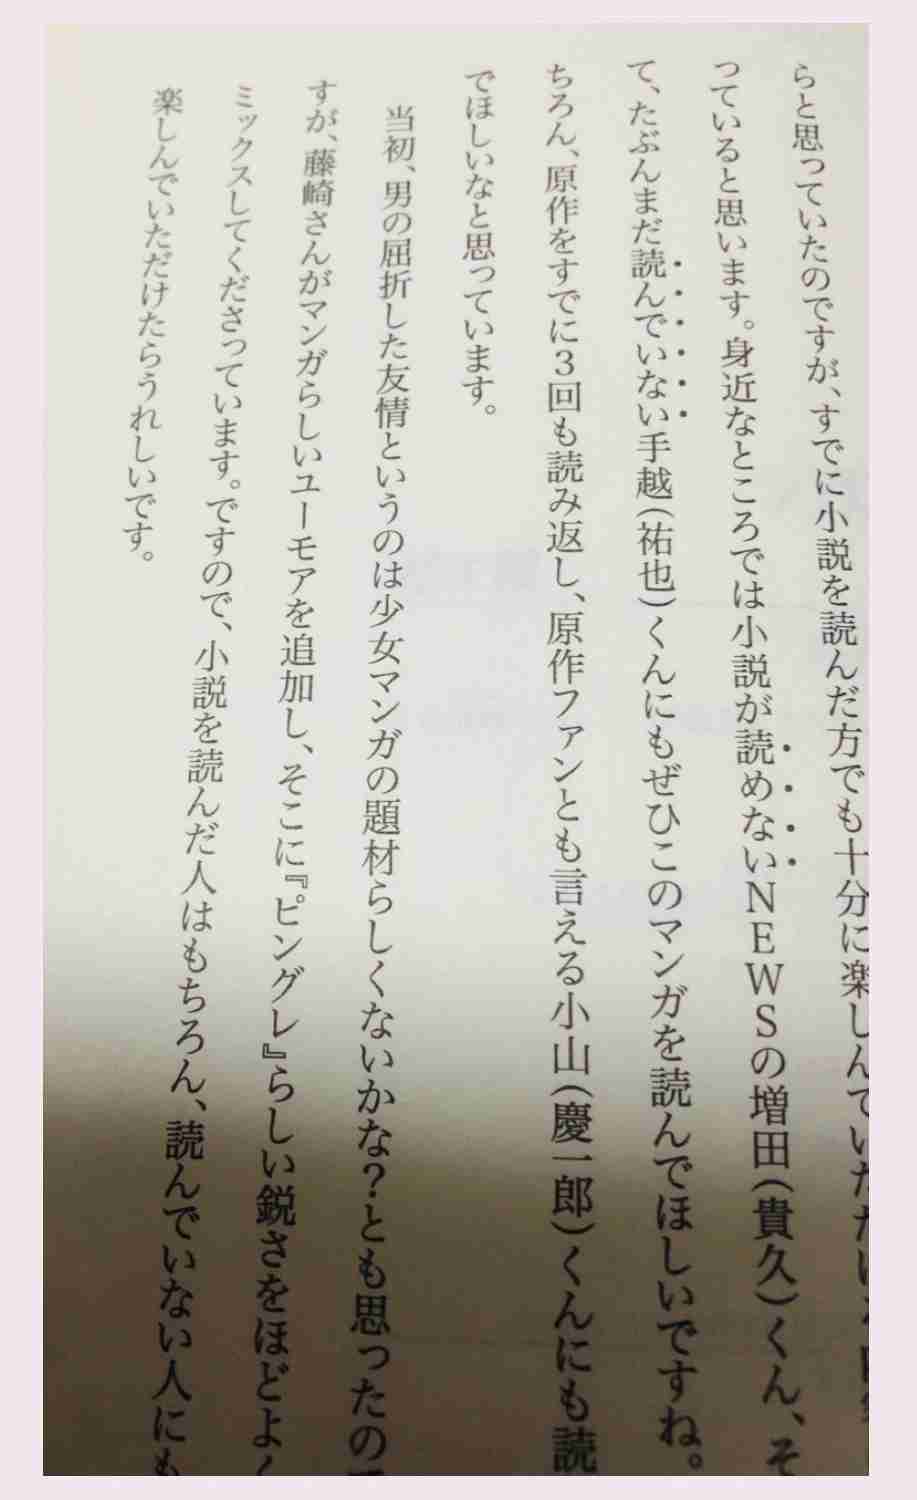 らと思っていたのですが、すでに小説を読んだ方でも十分に楽しんでいただけ
っていると思います。身近なところでは小説が読めないNEWSの増田(貴久)くん、そ
て、たぶんまだ読んでいない手越(祐也)くんにもぜひこのマンガを読んでほしいですね。
ちろん、原作をすでに3回も読み返し、原作ファンとも言える小山(慶一郎)くんにも読
でほしいなと思っています。
当初、男の屈折した友情というのは少女マンガの題材らしくないかな?とも思ったの
すが、藤崎さんがマンガらしいユーモアを追加し、そこに『ピングレ』らしい鋭さをほどよく
ミックスしてくださっています。ですので、小説を読んだ人はもちろん、読んでいない人にも
楽しんでいただけたらうれしいです。